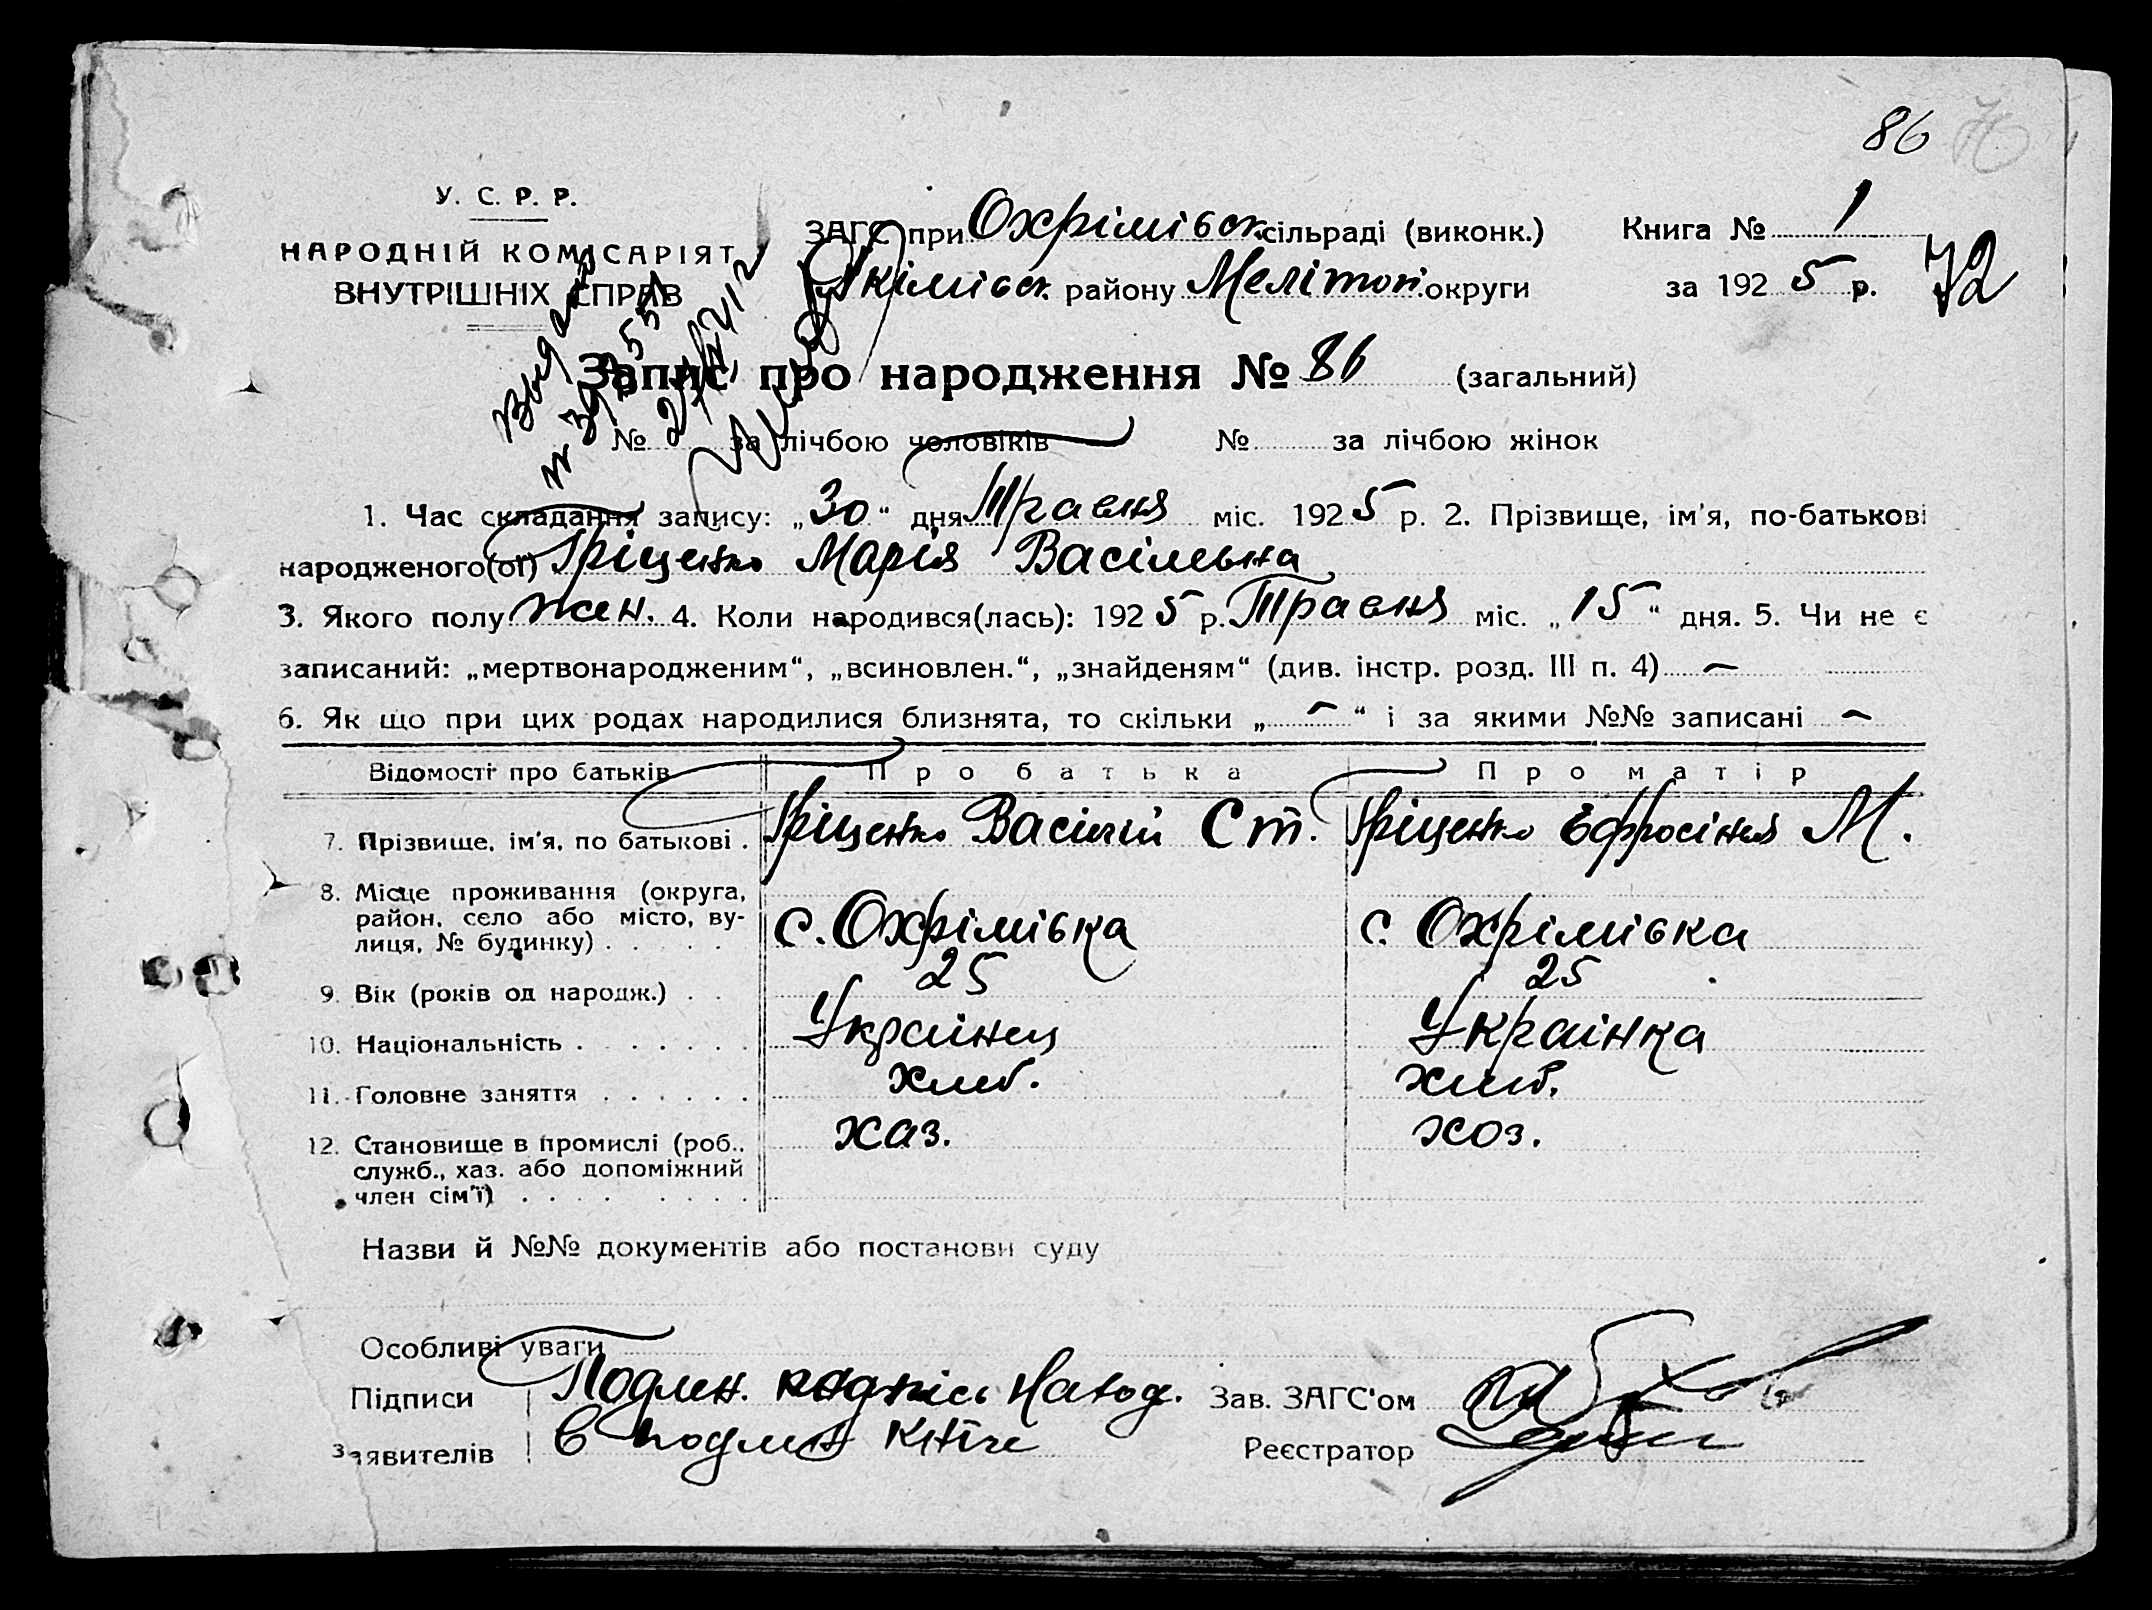 86 76
У. С. Р. Р.
НАРОДНІЙ КОМІСАРІЯТ
ВНУТРІШНІХ СПРАВ
ЗАГС при Охрімівск. сільраді (виконк.)
Якімівск. району Мелітоп. округи
Книга № 1
за 1925 р.
72
Запис про народження № 86 (загальний)
№ за лічбою чоловіків № за лічбою жінок
1. Час складання запису: „30“ дня Травня міс. 1925 р. 2. Прізвище, ім'я, по-батькові
народженого(ої) Гріценко Марія Васільевна
3. Якого полу жен. 4. Коли народився(лась): 1925 р. Травня міс. „15“ дня. 5. Чи не є
записаний: „мертвонародженим“, „всиновлен.“, „знайденям“ (див. інстр. розд. III п. 4) —
6. Як що при цих родах народилися близнята, то скільки „—“ і за якими №№ записані —
Відомості про батьків Про батька Про матір
7. Прізвище, ім'я, по батькові . Гріценко Васілій Ст. Гріценко Ефросінья М.
8. Місце проживання (округа,
район, село або місто, ву-
лиця, № будинку) . . . . . с. Охрімівка с. Охрімівка
9. Вік (років од народж.) . . 25 25
10. Національність . . . . . . . Украінец Украінка
11. Головне заняття . . . . . . хліб. хліб.
12. Становище в промислі (роб.,
служб., хаз. або допоміжний
член сім'ї) . . . . . . . . хаз. хоз.
Назви й №№ документів або постанови суду
Особливі уваги
Підписи Подлен. подпісь Наход. Зав. ЗАГС'ом
заявителів в подлен кніге Реєстратор